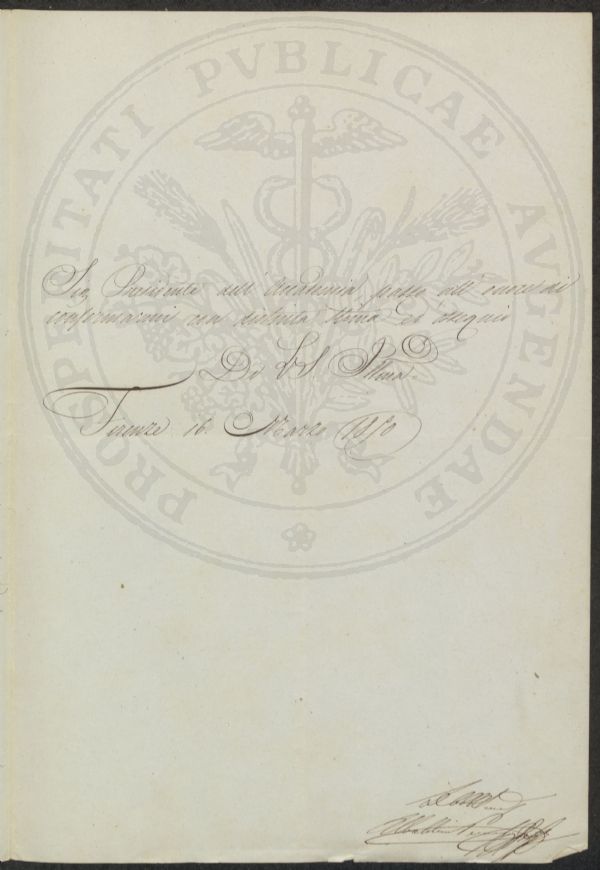 PROSPERITATI PVBLICAE AVGENDAE
Sig. Presidente dell' Accademia passo all' onore di
confermarmi con distinta stima ed ossequio
Di VS Illma
Firenze 16. Marzo 1850